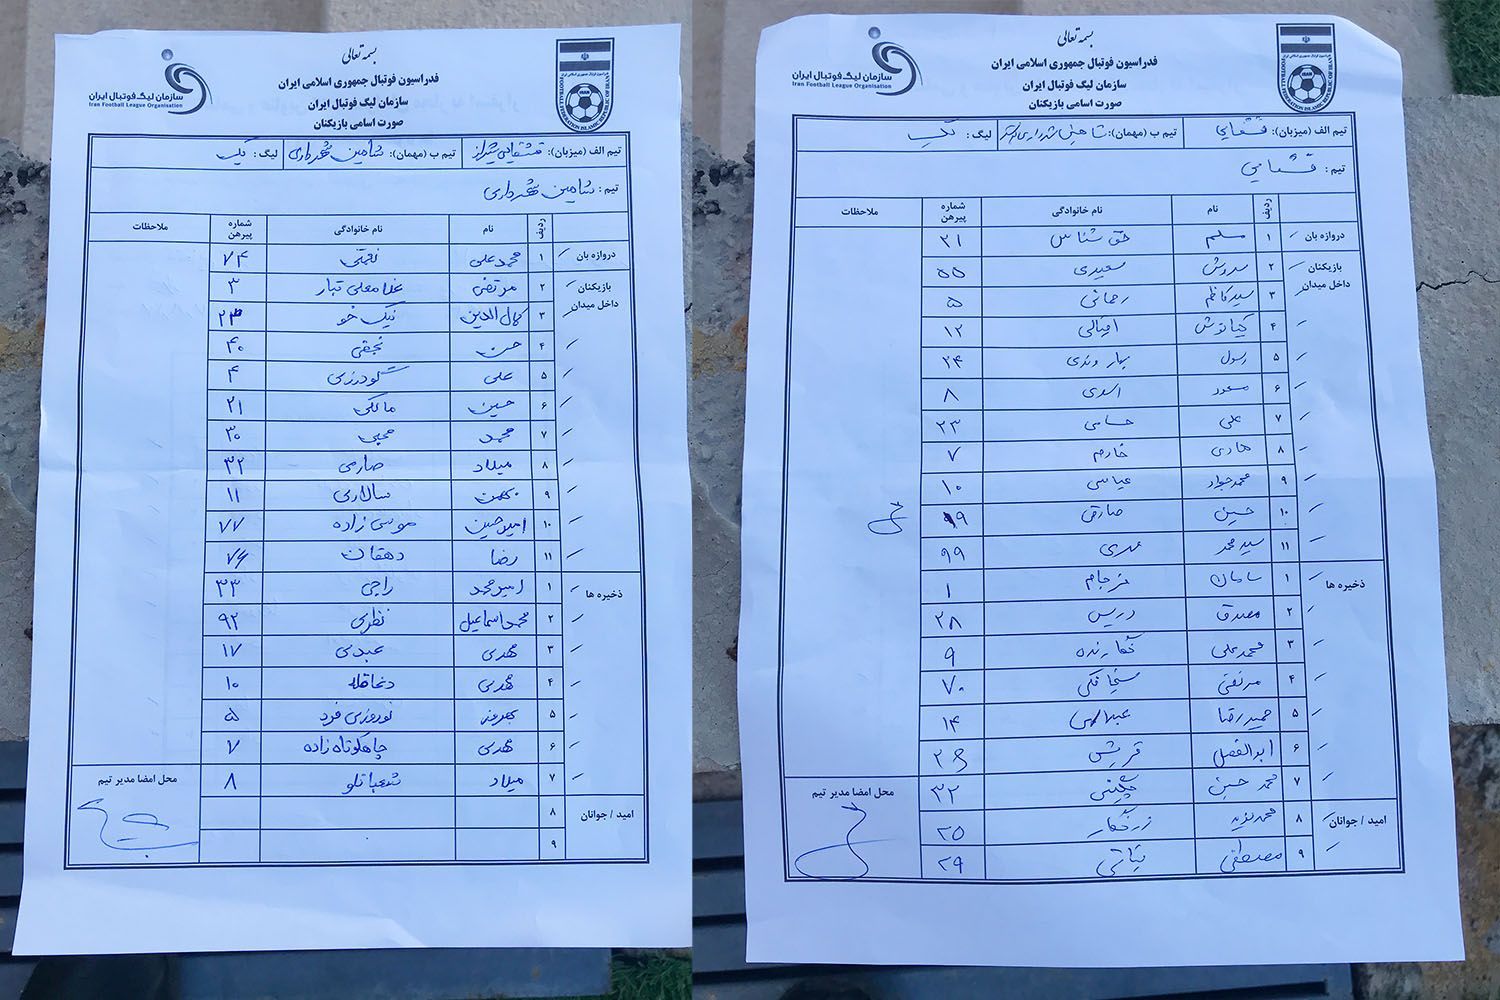 بسمه تعالی
فدراسیون فوتبال جمهوری اسلامی ایران
سازمان لیگ فوتبال ایران
صورت اسامی بازیکنان
سازمان لیگ فوتبال ایران
Iran Football League Organisation
تیم الف (میزبان): قشقایی شیراز تیم ب (مهمان): شاهین شهرداری لیگ: یک
تیم: شاهین شهرداری
ردیف نام نام خانوادگی شماره پیرهن ملاحظات
دروازه بان ۱ محمدعلی نعمتی ۷۴
بازیکنان داخل میدان ۲ مرتضی غلامعلی تبار ۳
۳ کمال الدین نیک خو ۲۳
۴ حسن نجفی ۴۰
۵ علی گودرزی ۴
۶ حسین مالکی ۲۱
۷ محمد محبی ۳۰
۸ میلاد صارمی ۳۲
۹ بهمن سالاری ۱۱
۱۰ امیرحسین موسی زاده ۷۷
۱۱ رضا دهقان ۷۶
ذخیره ها ۱ امیرمحمد راجی ۳۳
۲ محمداسماعیل نظری ۹۲
۳ مهدی عبدی ۱۷
۴ مهدی دغاقله ۱۰
۵ بهروز نوروزی فرد ۵
۶ مهدی چاهکوتاه زاده ۷
۷ میلاد شعبانلو ۸
محل امضا مدیر تیم
امید / جوانان ۸
۹
بسمه تعالی
فدراسیون فوتبال جمهوری اسلامی ایران
سازمان لیگ فوتبال ایران
صورت اسامی بازیکنان
سازمان لیگ فوتبال ایران
Iran Football League Organisation
تیم الف (میزبان): قشقایی تیم ب (مهمان): شاهین شهرداری لیگ: یک
تیم: قشقایی
ردیف نام نام خانوادگی شماره پیرهن ملاحظات
دروازه بان ۱ مسلم حق شناس ۲۱
بازیکنان داخل میدان ۲ سروش سعیدی ۵۵
۳ سیدکاظم رحمانی ۵
۴ کیانوش ۱۲
۵ رسول بهاروندی ۲۴
۶ مسعود اسدی ۸
۷ علی حسامی ۲۳
۸ هادی خادم ۷
۹ محمدجواد عباسی ۱۰
۱۰ حسین صادقی ۱۹
۱۱ سیدمحمد مهدی ۹۹
ذخیره ها ۱ سامان فرجام ۱
۲ مصدق دریس ۲۸
۳ محمدعلی نگارنده ۹
۴ مرتضی ۷۰
۵ حمیدرضا عبداللهی ۱۴
۶ ابوالفضل قریشی
۷ محمد حسین چگینی ۳۲
محل امضا مدیر تیم
امید / جوانان ۸ زرنگار ۲۵
۹ مصطفی ۲۹